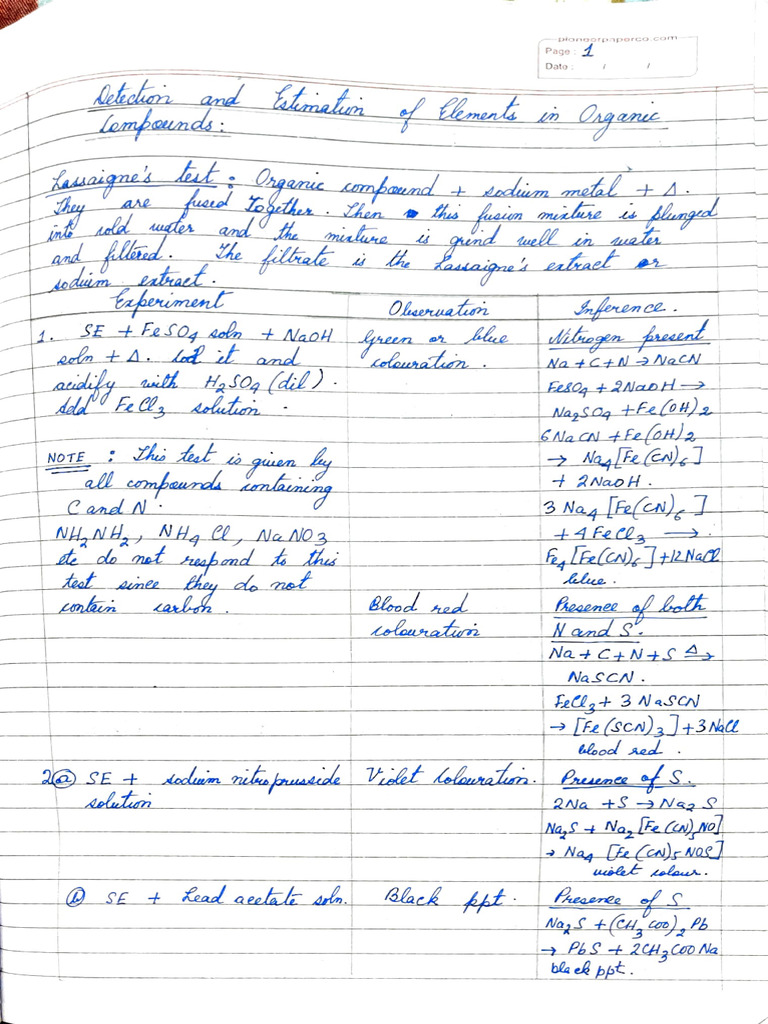 pioneerpaperco.com
Page: 1
Date: / /
Detection and Estimation of Elements in Organic
Compounds:
Lassaigne's test: Organic compound + sodium metal + Δ.
They are fused Together. Then this fusion mixture is plunged
into cold water and the mixture is grind well in water
and filtered. The filtrate is the Lassaigne's extract or
sodium extract.
Experiment
1. SE + FeSO4 soln + NaOH
soln + Δ. Cool it and
acidify with H2SO4 (dil).
Add FeCl3 solution.
NOTE: This test is given by
all compounds containing
C and N.
NH2NH2, NH4Cl, NaNO3
etc do not respond to this
test since they do not
contain carbon.
Observation
Green or blue
colouration.
Blood red
colouration
Inference.
Nitrogen present
Na + C + N → NaCN
FeSO4 + 2NaOH →
Na2SO4 + Fe(OH)2
6NaCN + Fe(OH)2
→ Na4[Fe(CN)6]
+ 2NaOH.
3 Na4[Fe(CN)6]
+ 4FeCl3 →
Fe4[Fe(CN)6] + 12NaCl
blue.
Presence of both
N and S.
Na + C + N + S Δ→
NaSCN.
FeCl3 + 3 NaSCN
→ [Fe(SCN)3] + 3NaCl
blood red.
2(a) SE + sodium nitroprusside
solution
Violet colouration.
Presence of S.
2Na + S → Na2S
Na2S + Na2[Fe(CN)5NO]
→ Na4[Fe(CN)5NOS]
violet colour.
(b) SE + Lead acetate soln.
Black ppt.
Presence of S
Na2S + (CH3COO)2Pb
→ PbS + 2CH3COONa
black ppt.